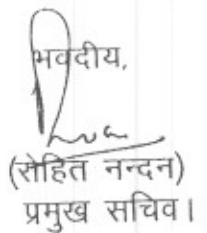 भवदीय,
(रोहित नन्दन)
प्रमुख सचिव।